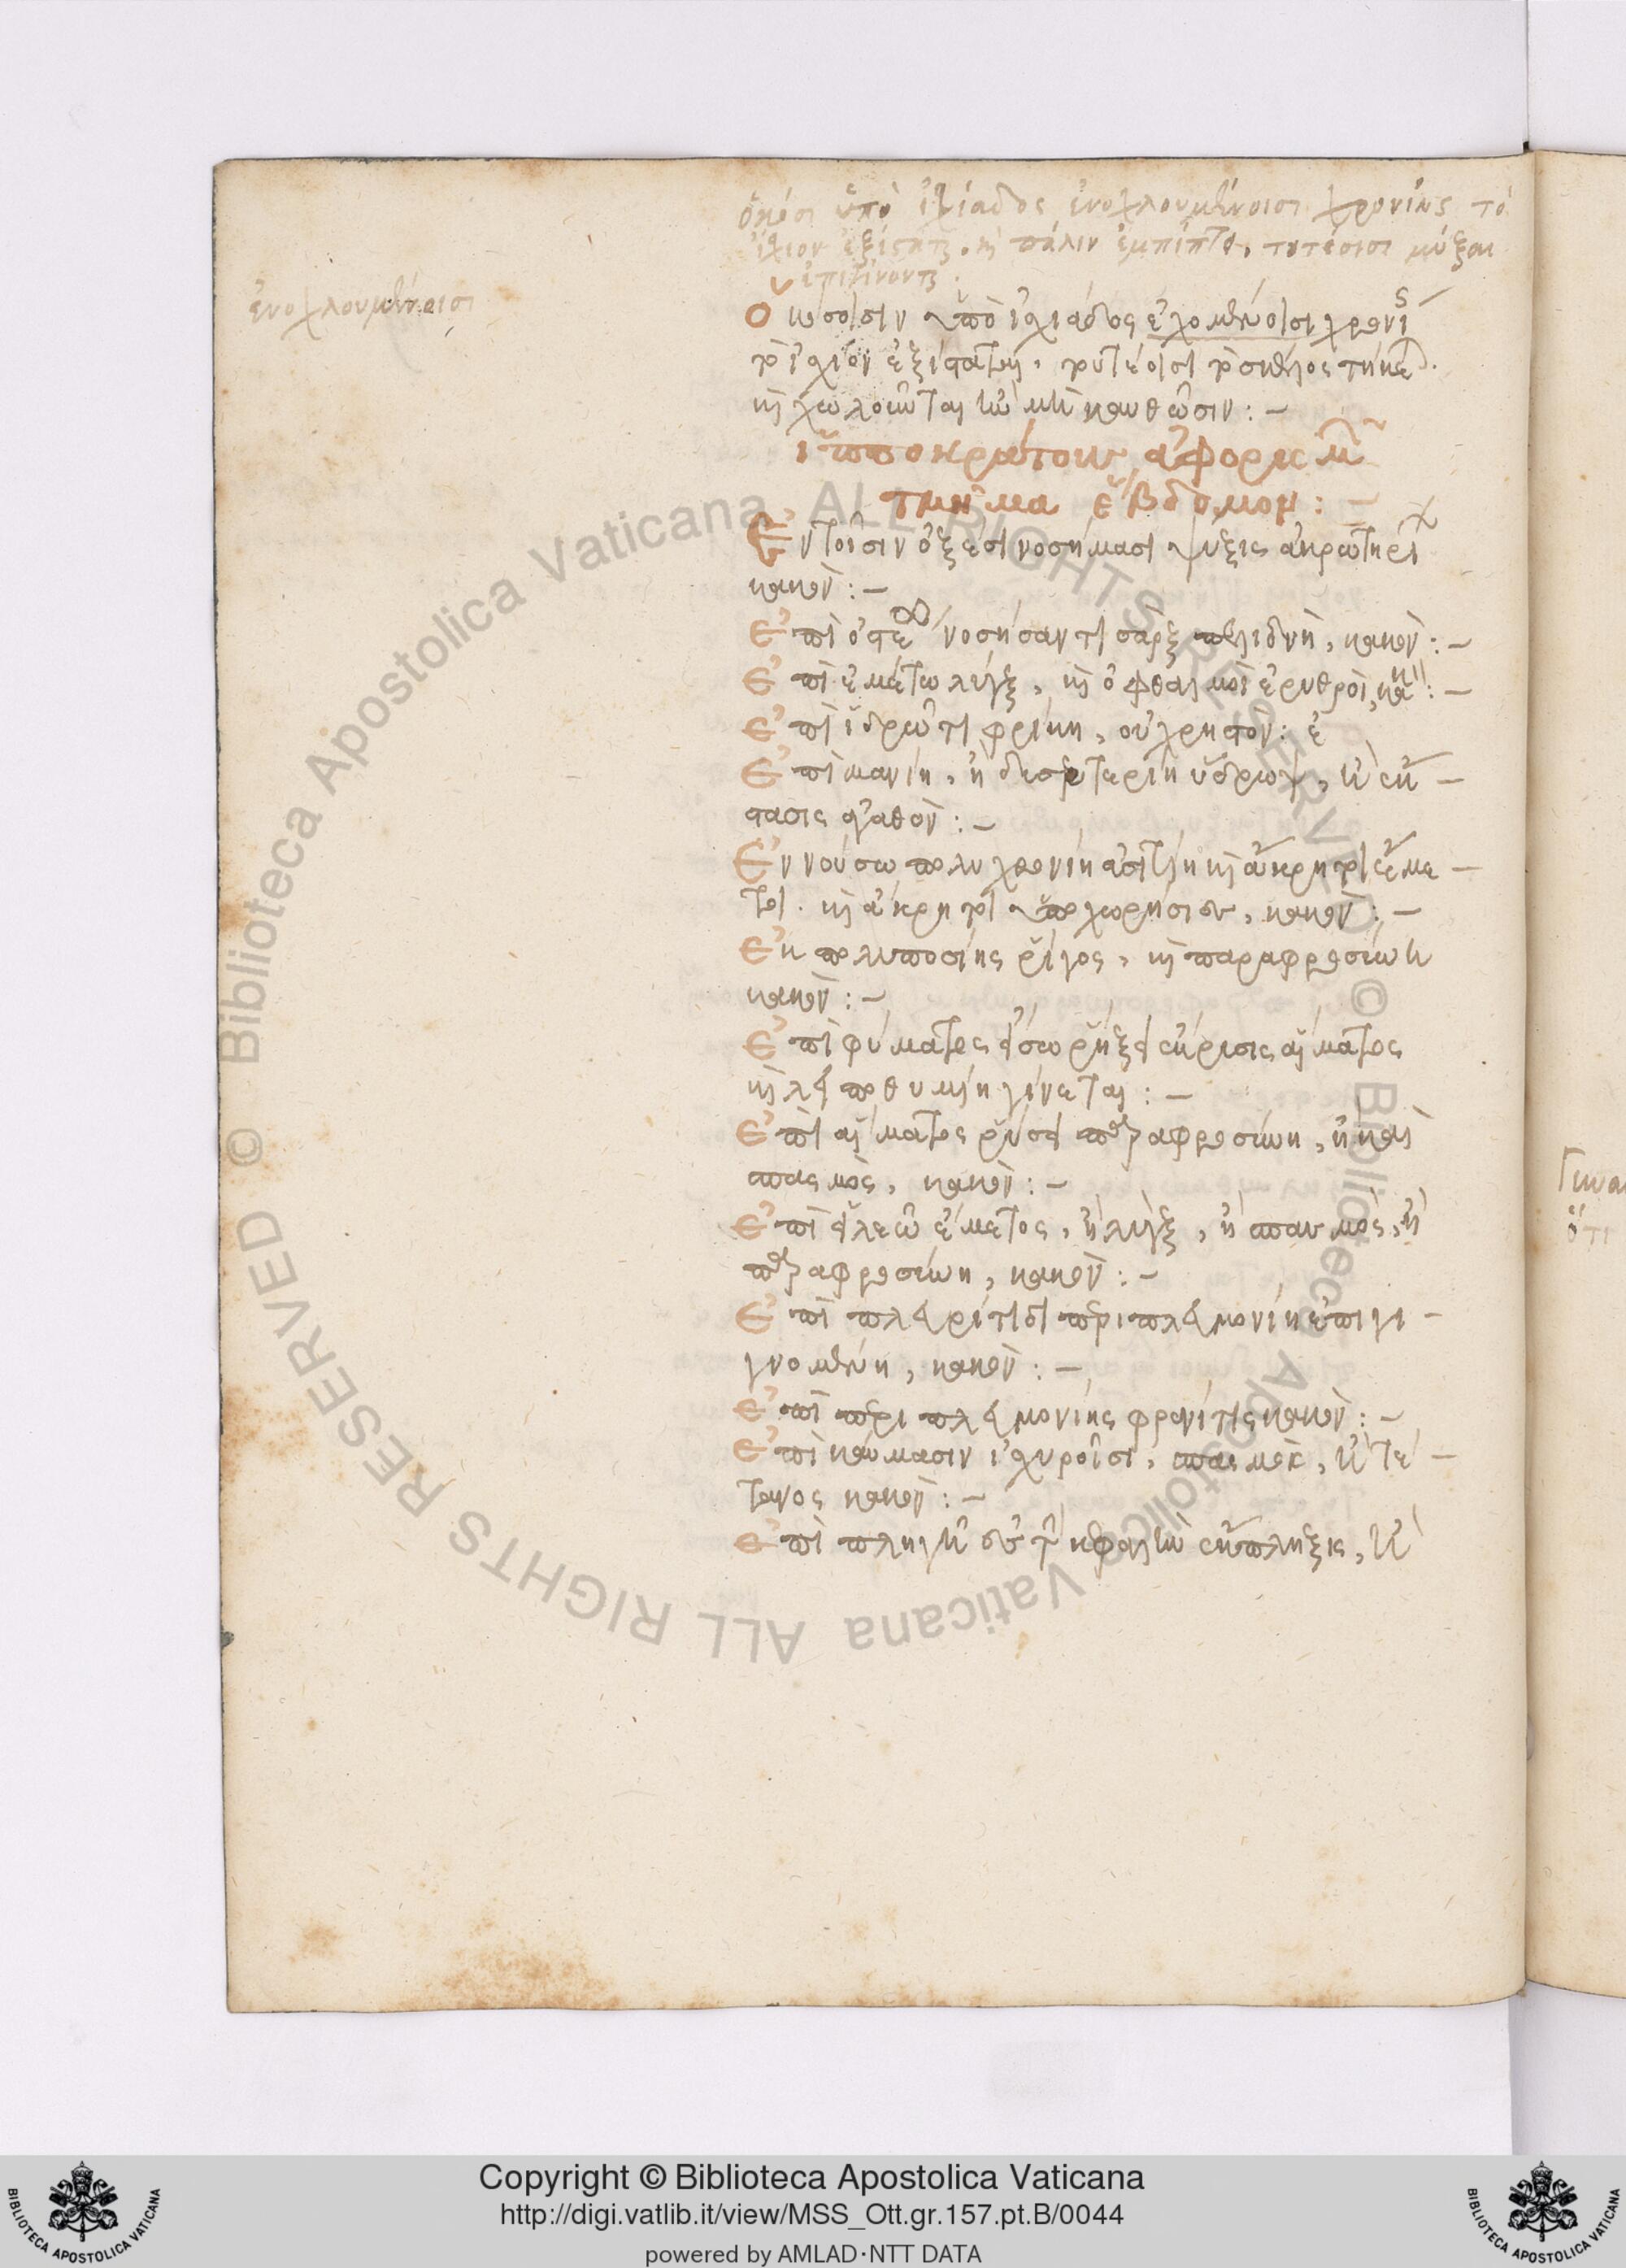 ὁκόσοι ὑπὸ ἰσχιάδος ἐνοχλουμένοισι χρονίης τὸ
ἰσχίον ἐξίσταται, καὶ πάλιν ἐμπίπτει, τουτέοισι μύξαι
ἐπιγίνονται.
ἐνοχλουμένοισι
Ὁκόσοισιν ὑπὸ ἰσχιάδος ἐχομένοισι χρονίης
τὸ ἰσχίον ἐξίσταται, τουτέοισι τὸ σκέλος τήκεται.
καὶ χωλοῦνται ἢν μὴ καυθῶσιν : –
ἱπποκράτους ἀφορισμῶν
τμῆμα ἕβδομον : –
Ἐν τοῖσιν ὀξέσι νοσήμασι ψύξις ἀκρωτηρίων
κακόν : –
Ἐπὶ ὀστέῳ νοσήσαντι σὰρξ πελιδνὴ, κακόν : –
Ἐπὶ ἐμέτῳ λύγξ, καὶ ὀφθαλμοὶ ἐρυθροὶ, κακόν : –
Ἐπὶ ἱδρῶτι φρίκη, οὐ χρηστόν :
Ἐπὶ μανίῃ, ἢ δυσεντερίη ὕδρωψ, ἢ ἐκ –
στασις ἀγαθόν : –
Ἐν νούσῳ πολυχρονίῃ ἀσιτίη καὶ ἄκρητοι ἔμε –
τοι. καὶ ἄκρητοι ὑποχωρήσιες, κακόν : –
Ἐκ πολυποσίης ῥίγος, καὶ παραφροσύνη
κακόν : –
Ἐπὶ φύματος εἴσω ῥήξει ἔκκρισις αἵματος
καὶ λειποθυμίη γίνεται : –
Ἐπὶ αἵματος ῥύσει παραφροσύνη, ἢ καὶ
σπασμὸς, κακόν : –
Ἐπὶ εἰλεῷ ἔμετος, ἢ λύγξ, ἢ σπασμὸς, ἢ
παραφροσύνη, κακόν : –
Ἐπὶ πλευρίτιδι περιπλευμονίη ἐπιγι –
γνομένη, κακόν : –
Ἐπὶ περιπλευμονίης φρενίτις κακόν : –
Ἐπὶ καύμασιν ἰσχυροῖσι, σπασμὸς, ἢ τέ –
τανος κακόν : –
Ἐπὶ πληγῇ ἐς τὴν κεφαλὴν ἔκπληξις, ἢ
Copyright © Biblioteca Apostolica Vaticana
http://digi.vatlib.it/view/MSS_Ott.gr.157.pt.B/0044
powered by AMLAD·NTT DATA